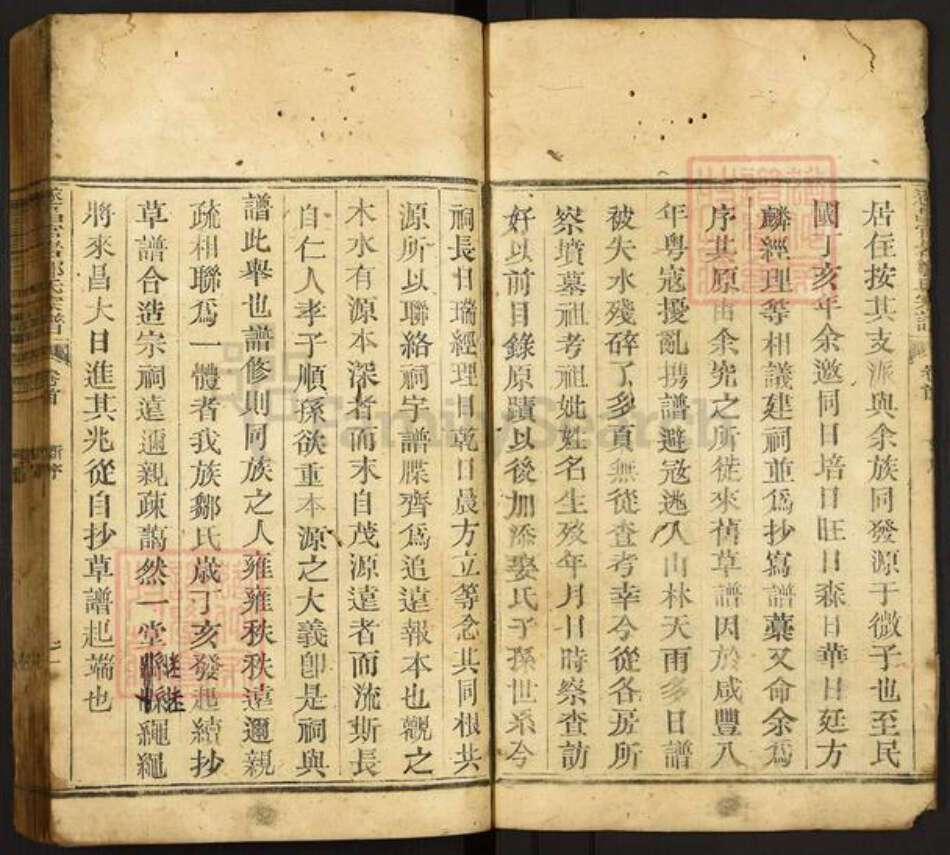 居住按其支派與余族同發源于微子也至民
國丁亥年余邀同日培日旺日森日華日廷方
麟經理等相議建祠並爲抄寫譜藁又命余爲
序其原由余究之所從來舊草譜因於咸豐八
年粵寇擾亂攜譜避冦逃入山林天雨多日譜
被失水殘碎了多頁無從查考幸今從各房所
察墳墓祖考祖妣姓名生殁年月日時察查訪
好以前目錄原蹟以後加添娶氏子孫世系今
祠長日瑞經理日乾日晨方立等念其同根共
源所以聯絡祠宇譜牒齊爲追遠報本也觀之
木水有源本深者而末自茂源遠者而流斯長
自仁人孝子順孫欲重本源之大義卽是祠與
譜此舉也譜修則同族之人雍雍秩秩遠邇親
疏相聯爲一體者我族鄒氏歲丁亥發起續抄
草譜合造宗祠遠邇親疎藹然一堂繼繼繩繩
將來昌大日進其兆從自抄草譜起端也
卷首
新序
FamilySearch